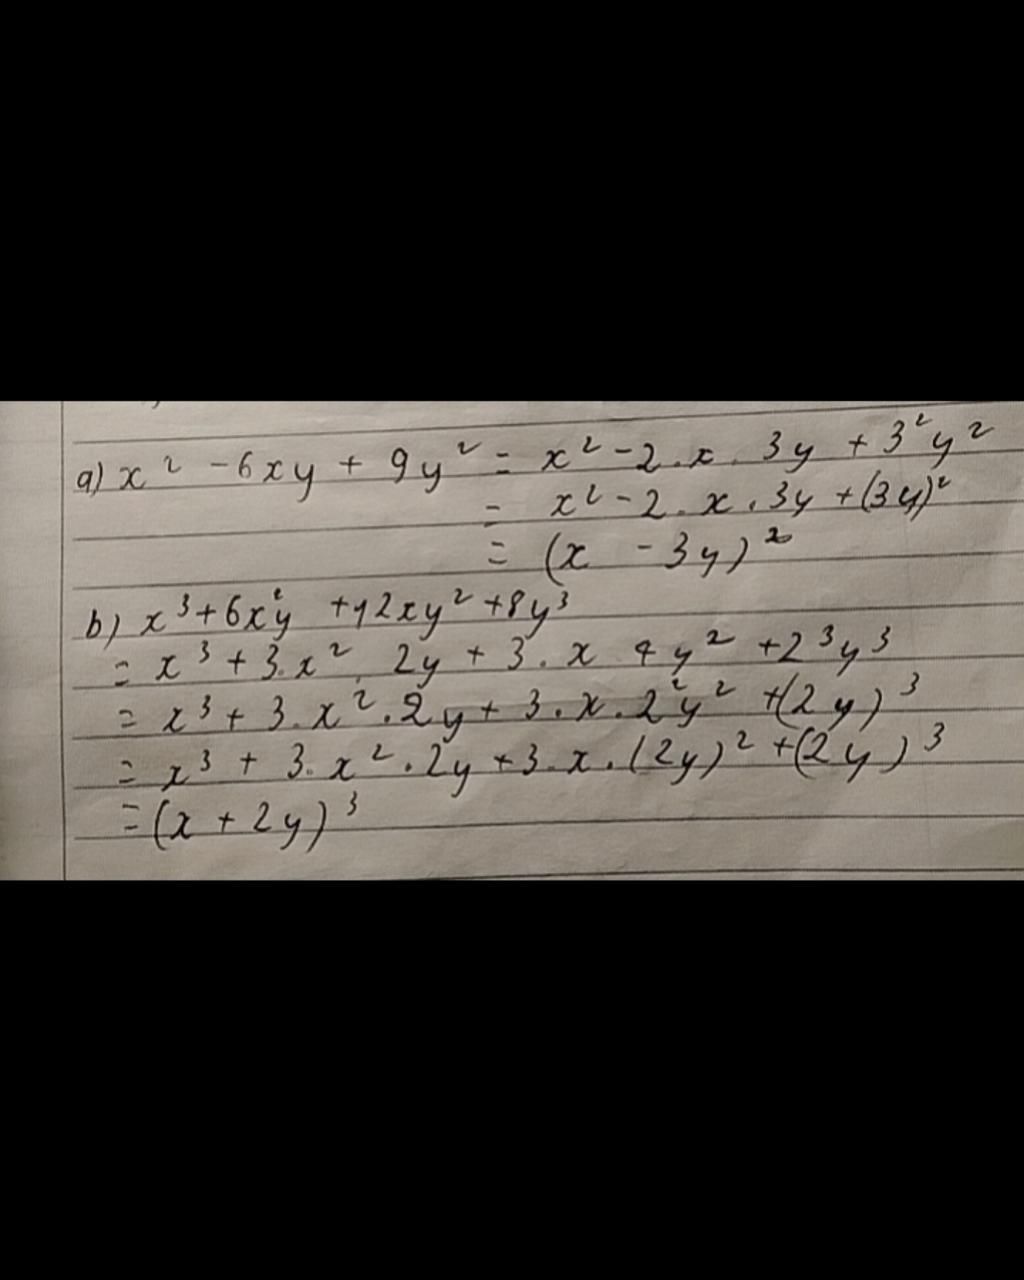 a) x² - 6xy + 9y² = x² - 2 . x . 3y + 3²y²
= x² - 2 . x . 3y + (3y)²
= (x - 3y)²
b) x³ + 6x²y + 12xy² + 8y³
= x³ + 3.x² . 2y + 3 . x 4y² + 2³y³
= x³ + 3 . x² . 2y + 3 . x . 2²y² + (2y)³
= x³ + 3 . x² . 2y + 3 . x . (2y)² + (2y)³
= (x + 2y)³